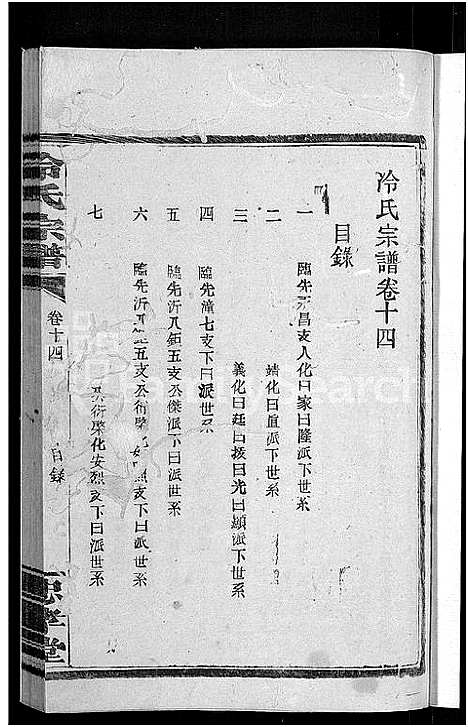 冷氏宗譜卷十四
目錄
一 臨先沂昌支人化曰家曰隆派下世系
二 緒化曰直派下世系
三 義化曰廷曰拔曰光曰顯派下世系
四 臨先潼七支下曰派世系
五 臨先沂八鉅五支公傑派下曰派世系
六 臨先沂八五支公衍肇烈支下曰派世系
七 公衍肇化安烈支下曰派世系
冷氏宗譜
卷十四
目錄
忠孝堂
FamilySearch